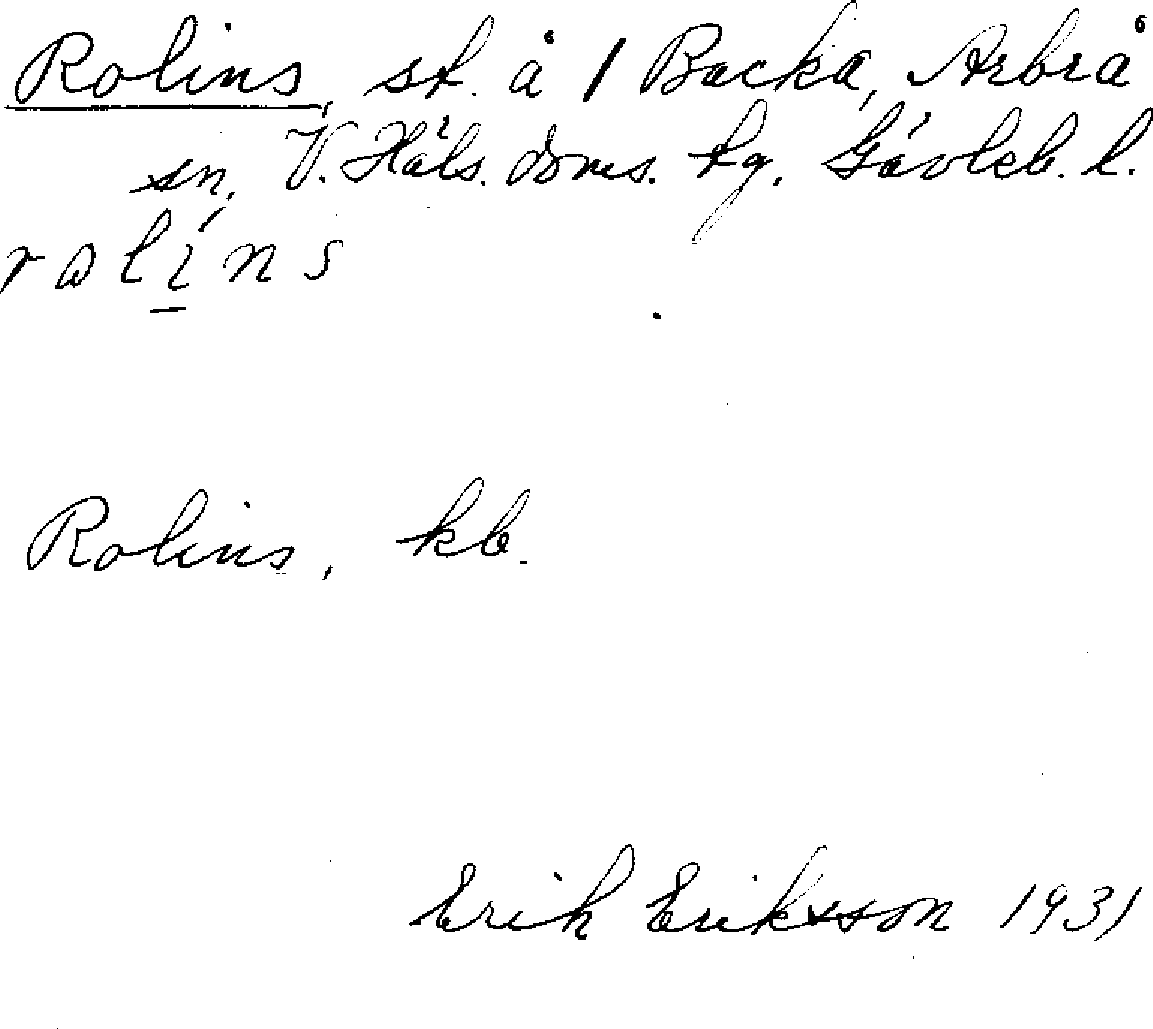 Rolins, st. å 1 Backa, Arbrå
sn, V. Häls. doms. tg, Gävleb. l.
rolíns
Rolins, kb.
Erik Eriksson 1931